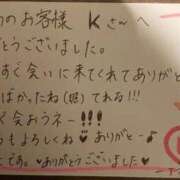 のお客様 Kさんへ
とうございました。
すぐ会いに来てくれてありがと
ばかったね(照)てれる!!!
く会おうネー!!!
もよろしくね♡ ありがとー♪
です。♥ありがとうございました♥